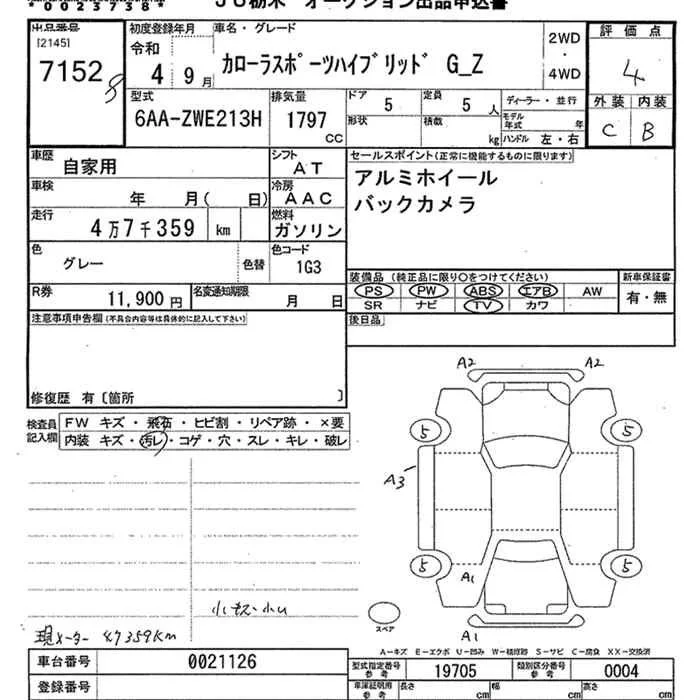 *0023738*
JU栃木 オークション出品申込書
出品番号
[2145]
7152
初度登録年月
令和
4 9月
車名・グレード
カローラスポーツハイブリッド G_Z
2WD
・
4WD
評価点
4
外装 内装
C B
型式
6AA-ZWE213H
排気量
1797
CC
ドア
5
定員
5 人
形状
積載
kg
ディーラー・並行
モデル年式 年
ハンドル 左・右
車歴
自家用
シフト
AT
車検
年 月( 日)
冷房
AAC
走行
4万7千359 km
燃料
ガソリン
色
グレー
色替
色コード
1G3
R券
11,900 円
名変通知期限
月 日
セールスポイント(正常に機能するものに限ります)
アルミホイール
バックカメラ
装備品 (純正品に限り○をつけてください)
PS PW ABS エアB AW
SR ナビ TV カワ
新車保証書
有・無
後日品
注意事項申告欄(不具合内容等は具体的に記入して下さい)
修復歴 有〔箇所 〕
検査員記入欄
FW キズ・飛石・ヒビ割・リペア跡・×要
内装 キズ・汚レ・コゲ・穴・スレ・キレ・破レ
A2 A2
5 5
A3
5 5
A1
A1
スペア
小キズ・小凹
現メーター 47359KM
A-キズ E-エクボ U-凹み W-補修跡 S-サビ C-腐食 XX-交換済
車台番号
0021126
登録番号
型式指定番号
参考
19705
類別区分番号
参考
0004
車庫証明用
参考
長さ cm
幅 cm
高さ cm